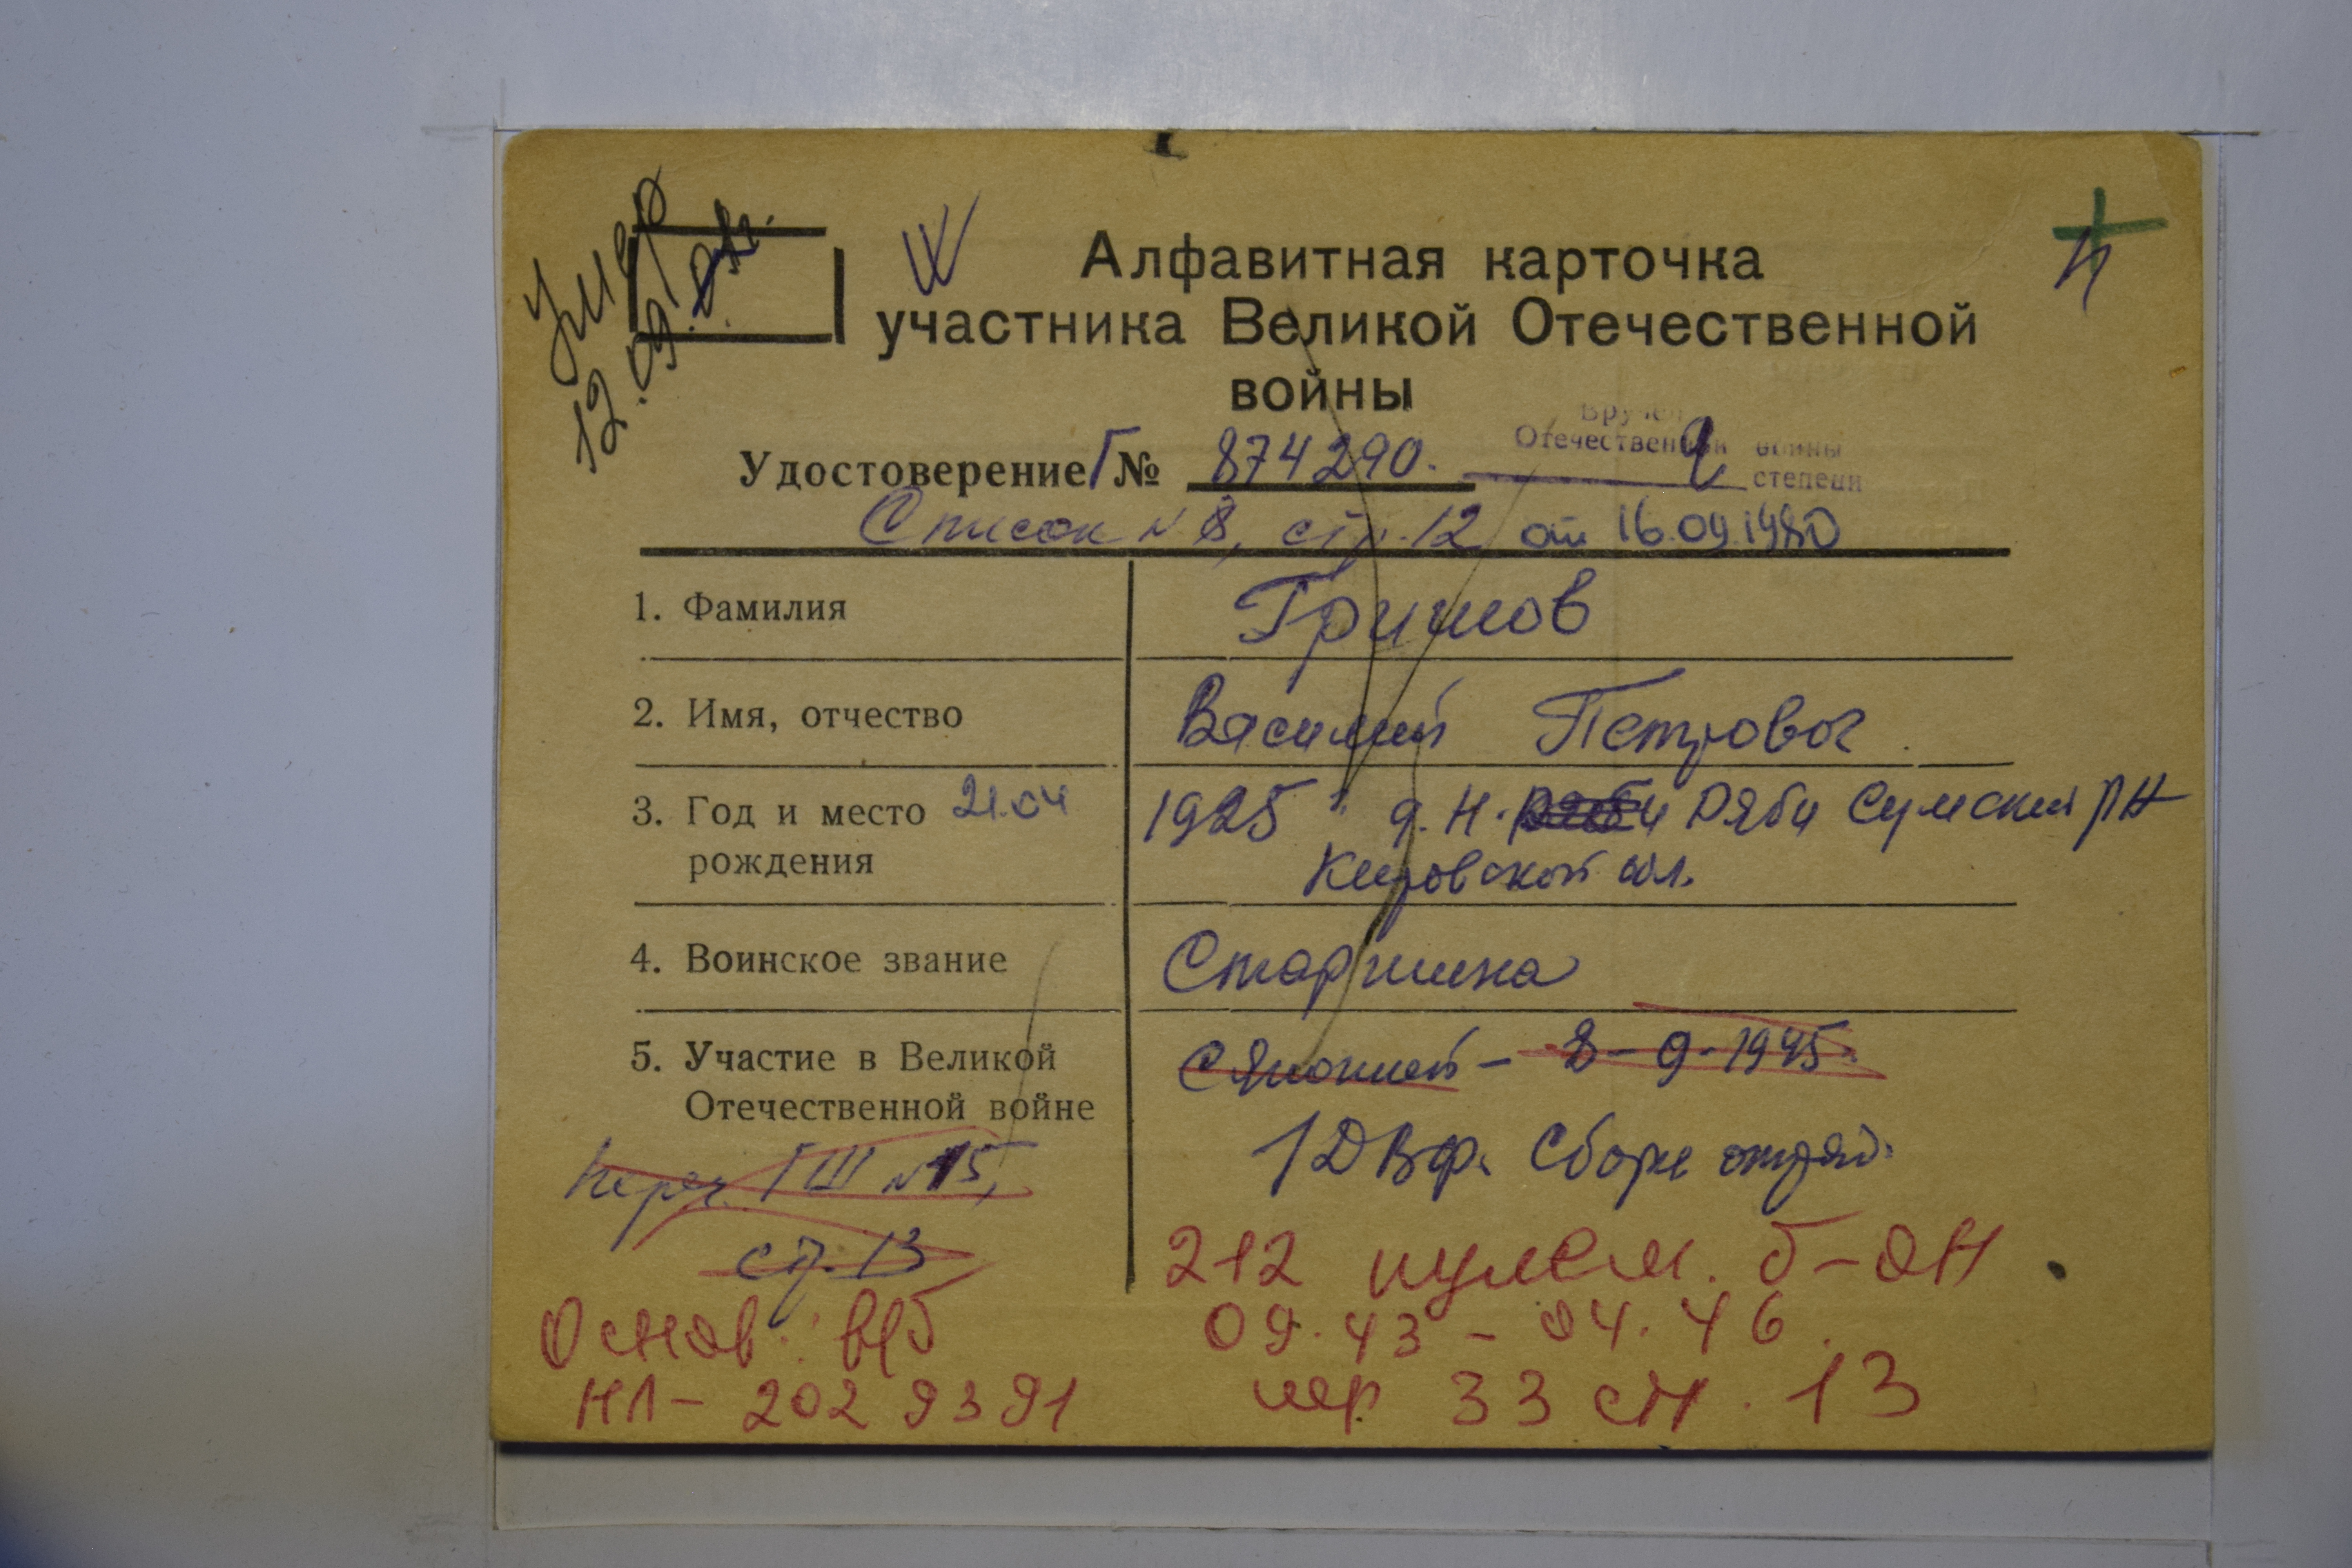 Умер
12.09.
Алфавитная карточка
участника Великой Отечественной
войны
Вручен
Отечественной войны
степени
Удостоверение Г № 874290.
Список № 8, стр. 12 от 16.09.1980
1. Фамилия Гришов
2. Имя, отчество Василий Петрович
3. Год и место рождения 21.04 1925 д. Н. Ряби Сумский рн
Кировской обл.
4. Воинское звание Старшина
5. Участие в Великой Отечественной войне С Японией - 8-9-1945
1 ДВф. Сборн отряд.
Переч. ГШ №15,
ст. 13
212 пулем. б-он
09.43 - 04.46.
Основ: в/б
НЛ - 2029391
пер 33 ст. 13